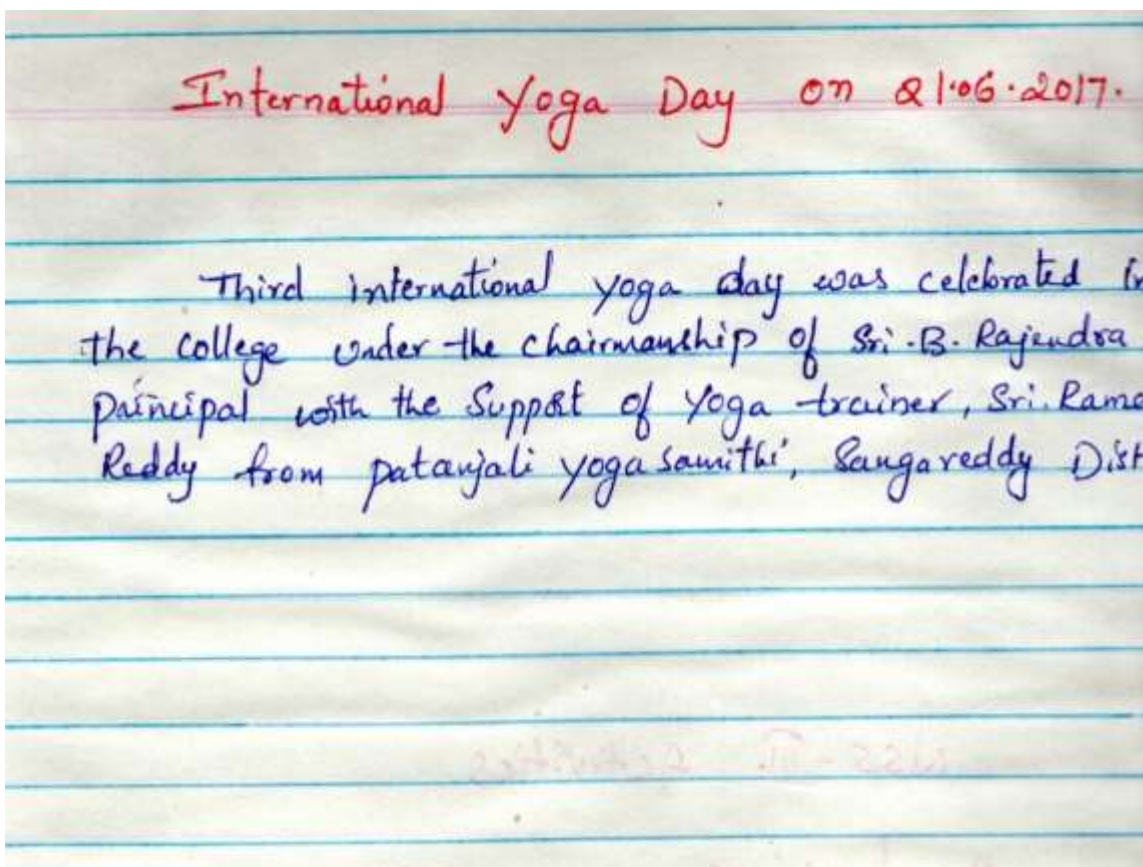 International Yoga Day on 21.06.2017.
Third international yoga day was celebrated in
the college under the chairmanship of Sri.B. Rajendra
Principal with the Support of Yoga trainer, Sri. Rama
Reddy from patanjali yoga samithi, Sangareddy Dist